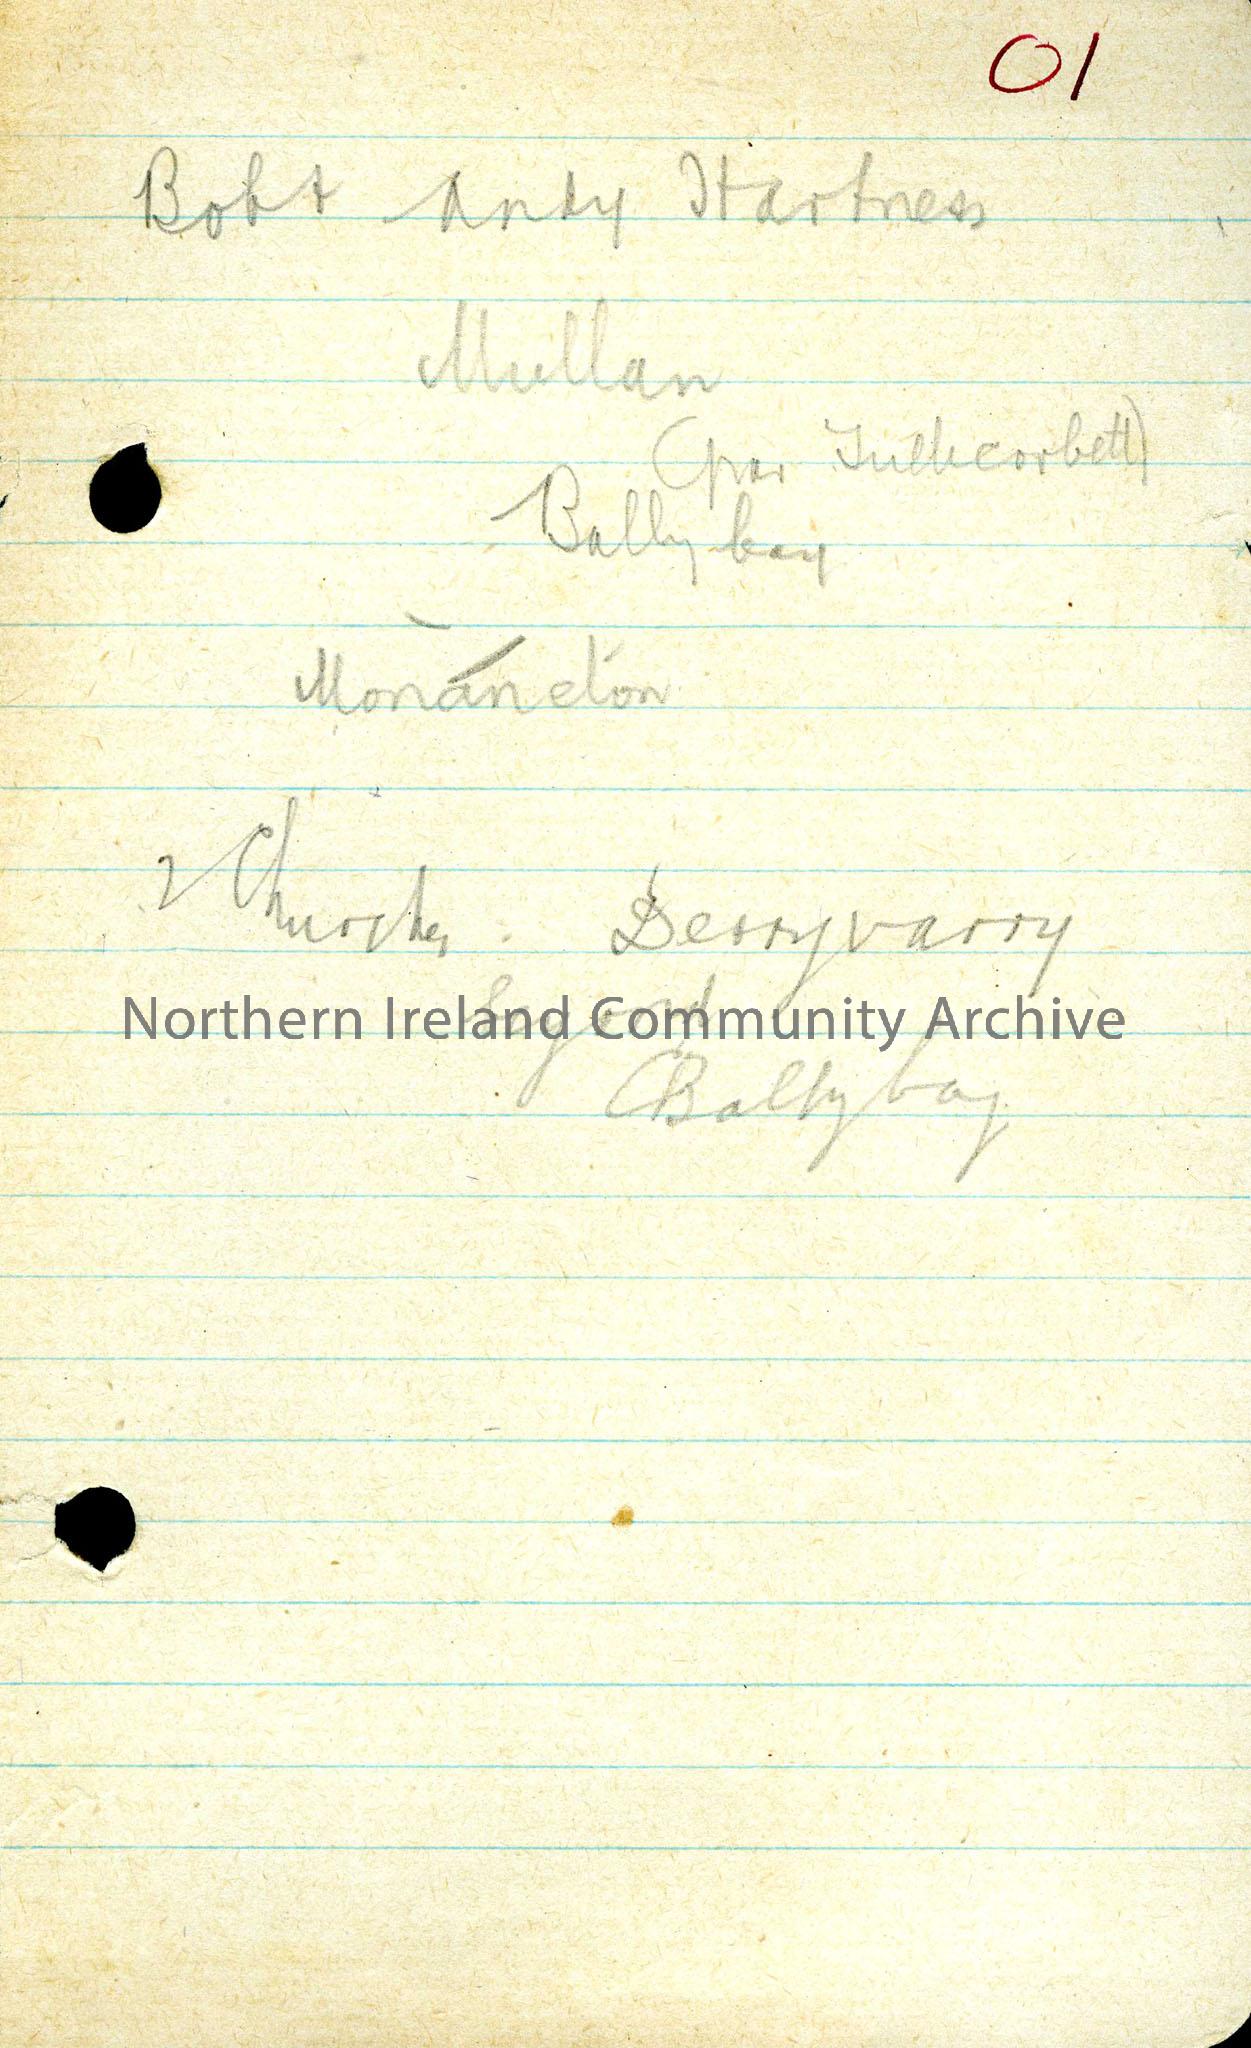 01
Bobt Andy Hartness
Mullan
(par Tullycorbett)
Ballybay
Monanton
2 Churches. Derryvarry
Northern Ireland Community Archive
Ballybay